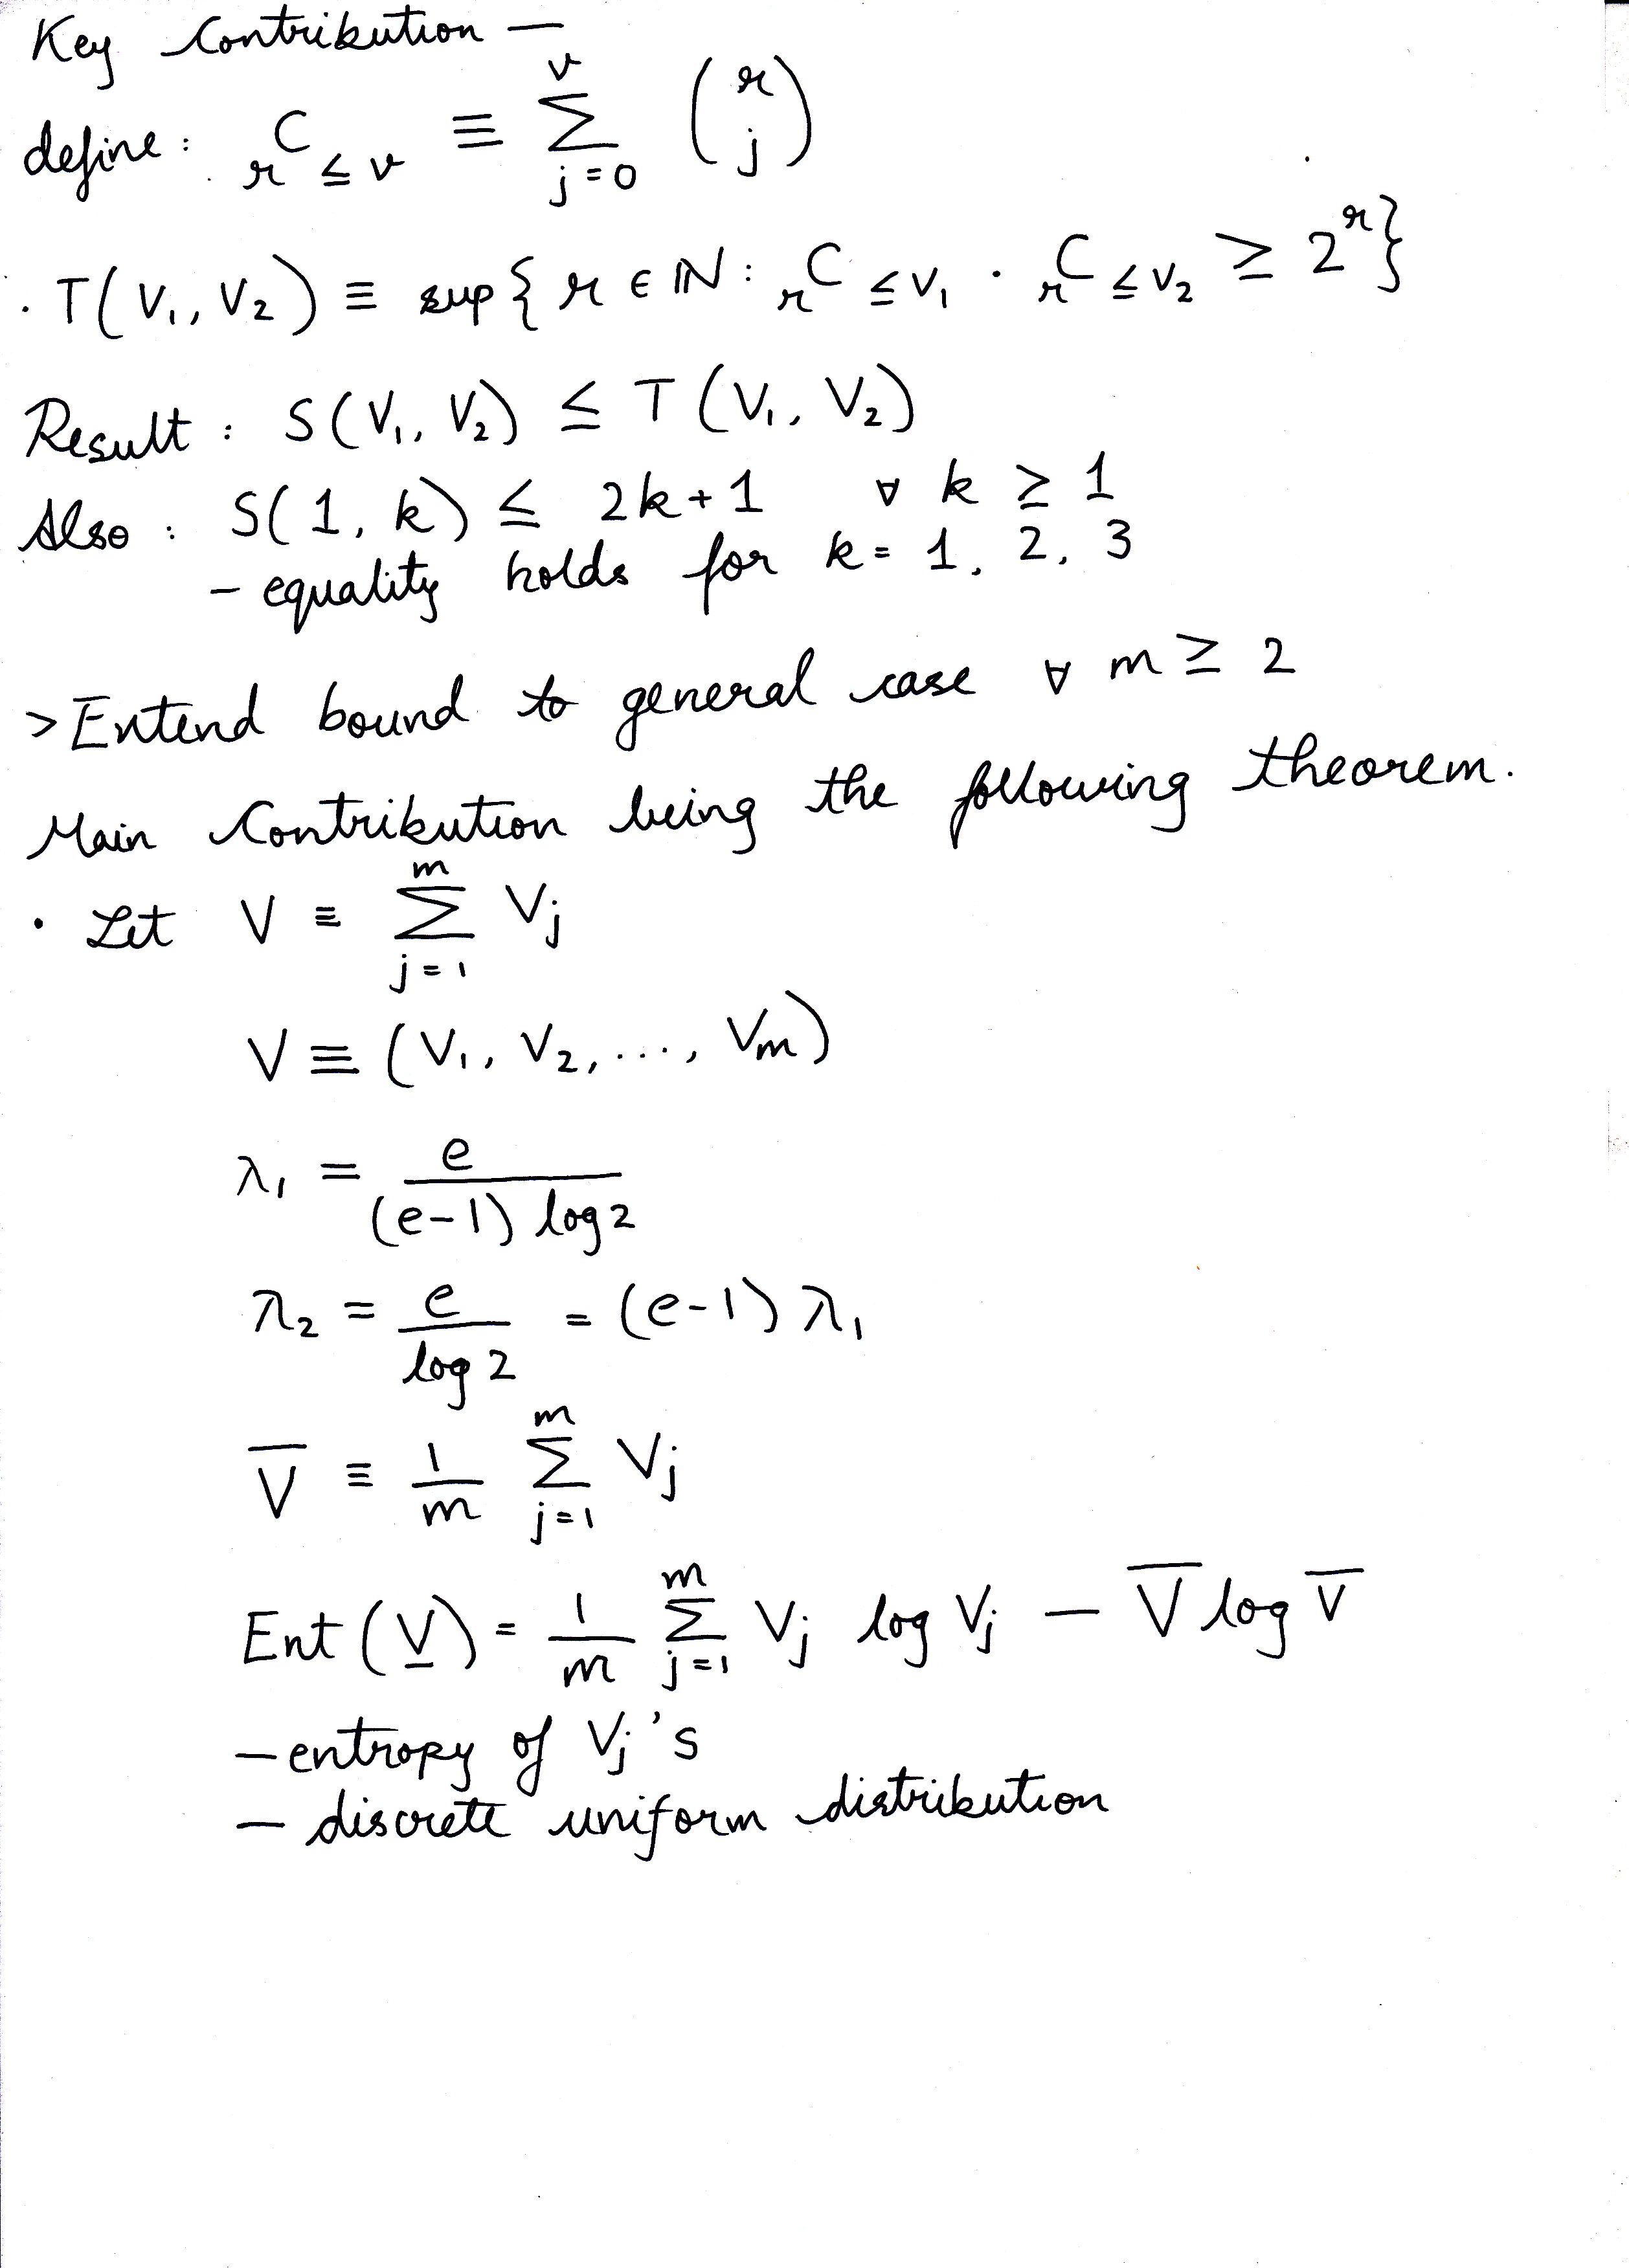 Key Contribution —
define: ᵣC≤v ≡ Σ_{j=0}^{v} (r j)
· T(V₁, V₂) ≡ sup{ r ∈ ℕ : ᵣC≤V₁ · ᵣC≤V₂ ≥ 2^r}
Result : S(V₁, V₂) ≤ T(V₁, V₂)
Also : S(1, k) ≤ 2k+1 ∀ k ≥ 1
- equality holds for k = 1, 2, 3
> Extend bound to general case ∀ m ≥ 2
Main Contribution being the following theorem.
· Let V ≡ Σ_{j=1}^{m} Vⱼ
V ≡ (V₁, V₂, ..., Vm)
λ₁ = e / (e-1) log 2
λ₂ = e / log 2 = (e-1) λ₁
V̅ ≡ 1/m Σ_{j=1}^{m} Vⱼ
Ent (V̲) = 1/m Σ_{j=1}^{m} Vⱼ log Vⱼ — V̅ log V̅
— entropy of Vⱼ's
— discrete uniform distribution